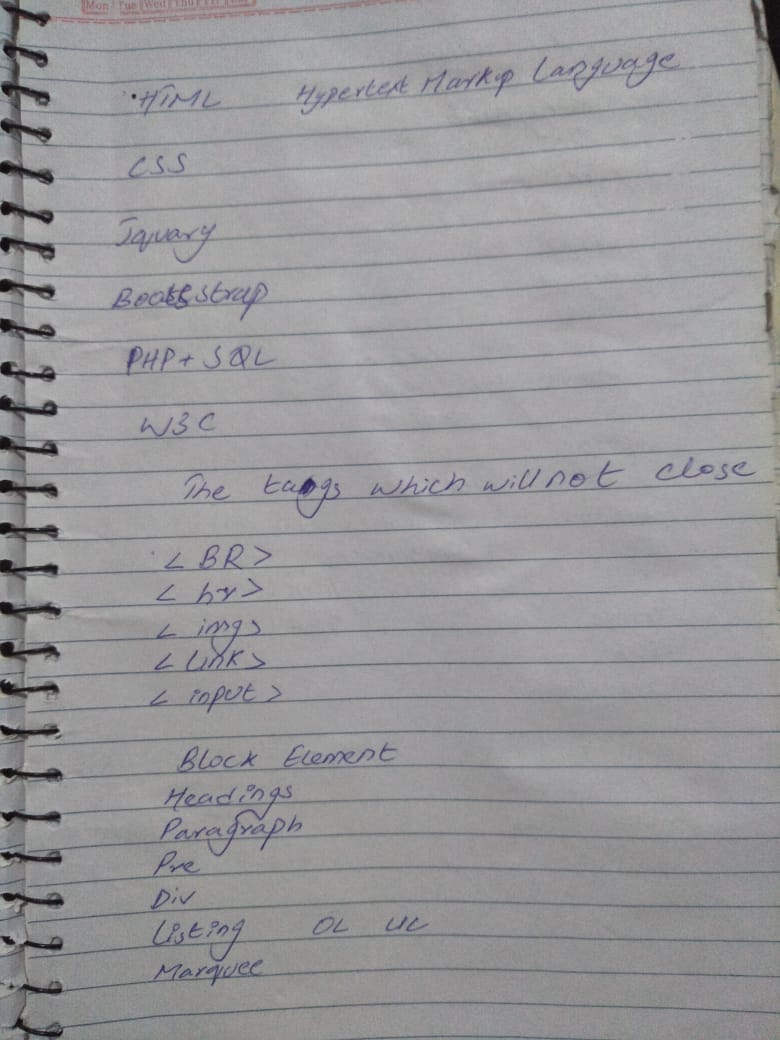 Mon Tue Wed Thu Fri
HTML Hypertext Markup Language
CSS
Jquary
Bootsstrap
PHP + SQL
W3C
The tags which will not close
< BR >
< hr >
< img >
< link >
< input >
Block Element
Headings
Paragraph
Pre
Div
Listing OL UL
Marquee